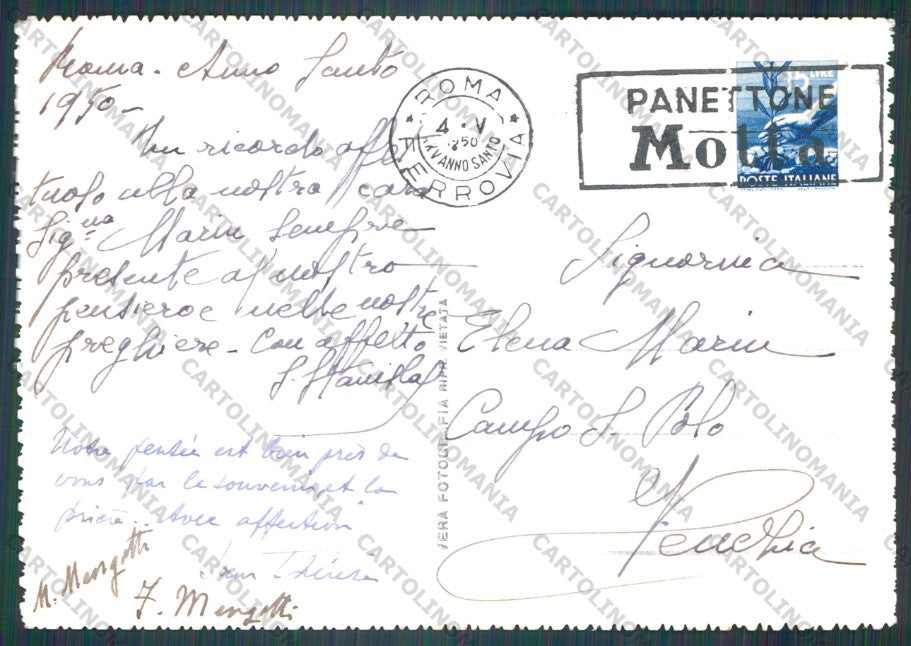 Roma - Anno Santo
1950 -
Un ricordo affet
tuoso alla nostra cara
Sig.na Marin sempre
presente al nostro
pensiero e nelle nostre
preghiere - Con affetto
S. Stanislas
Notre pensée est bien près de
vous par le souvenir et la
prière. Avec affection
M. Mengotti
F. Mengotti
ROMA FERROVIA
4 · V
1950
XXV ANNO SANTO
PANETTONE
Motta
15 LIRE
POSTE ITALIANE
Signorina
Elena Marin
Campo S. Polo
Venezia
VERA FOTOGRAFIA RIPR. VIETATA
CARTOLINOMANIA